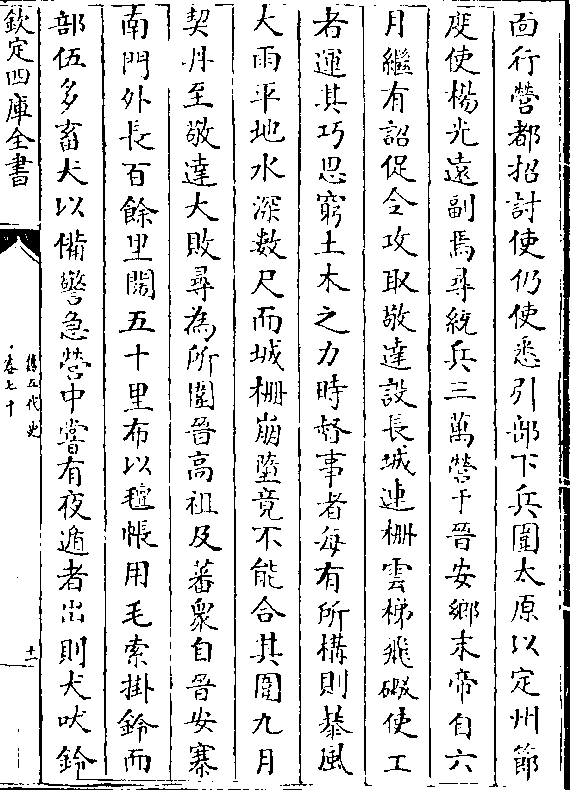 面行營都招討使仍使悉引部下兵圍太原以定州節
度使楊光遠副焉尋統兵三萬營于晉安鄉末帝自六
月繼有詔促令攻取敬達設長城連柵雲梯飛礮使工
者運其巧思窮土木之力時督事者每有所構則暴風
大雨平地水深數尺而城柵崩墮竟不能合其圍九月
契丹至敬達大敗尋為所圍晉高祖及蕃衆自晉安寨
南門外長百餘里闊五十里布以氊帳用毛索掛鈴而
部伍多畜犬以備警急營中嘗有夜遁者出則犬吠鈴
欽定四庫全書
舊五代史
卷七十
十二